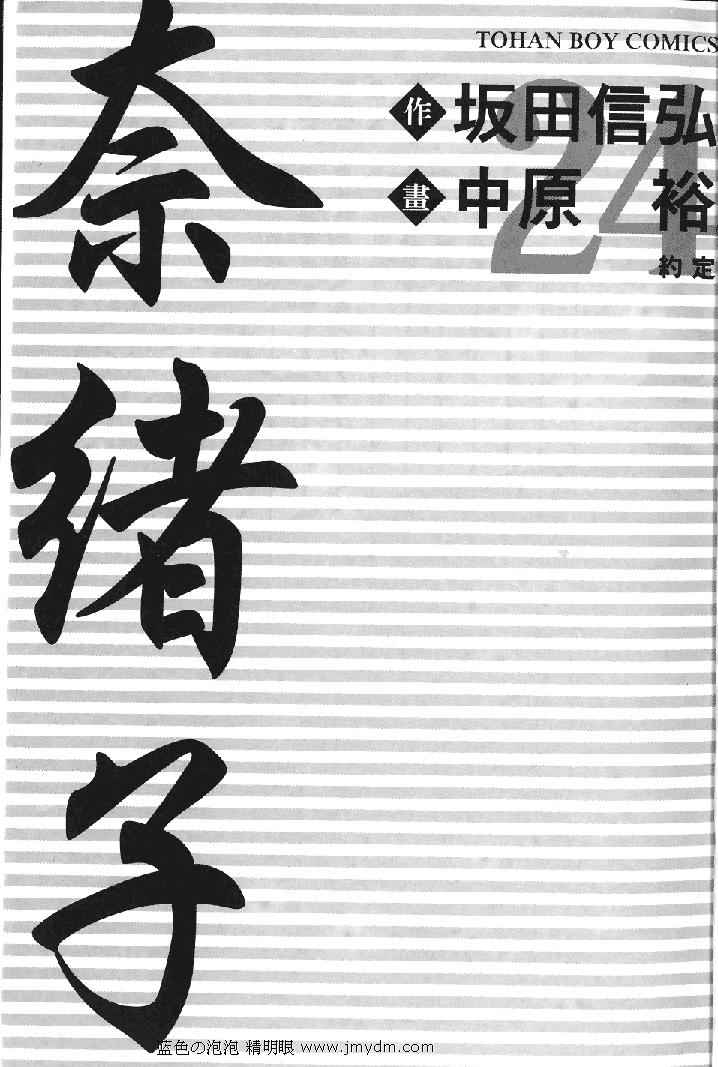 TOHAN BOY COMICS
作 坂田信弘
畫 中原 裕
24
約定
奈緒子
蓝色の泡泡 精明眼 www.jmydm.com